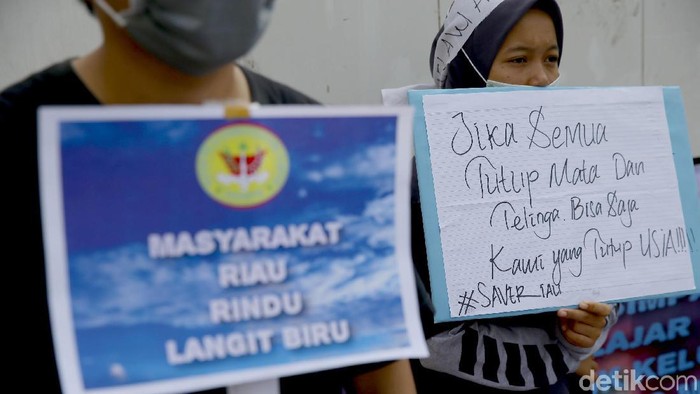 MASYARAKAT
RIAU
RINDU
LANGIT BIRU
Jika Semua
Tutup Mata Dan
Telinga. Bisa Saja
Kami yang Tutup USIA!!!
#SAVERIAU
LAJAR
detikcom